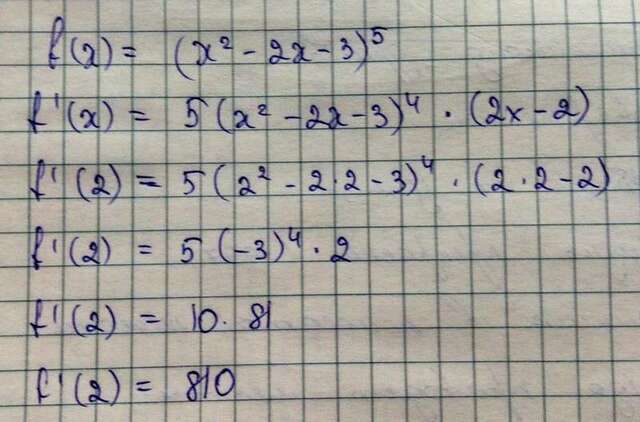 f(x) = (x² - 2x - 3)⁵
f'(x) = 5(x² - 2x - 3)⁴ · (2x - 2)
f'(2) = 5(2² - 2·2 - 3)⁴ · (2·2 - 2)
f'(2) = 5(-3)⁴ · 2
f'(2) = 10 · 81
f'(2) = 810